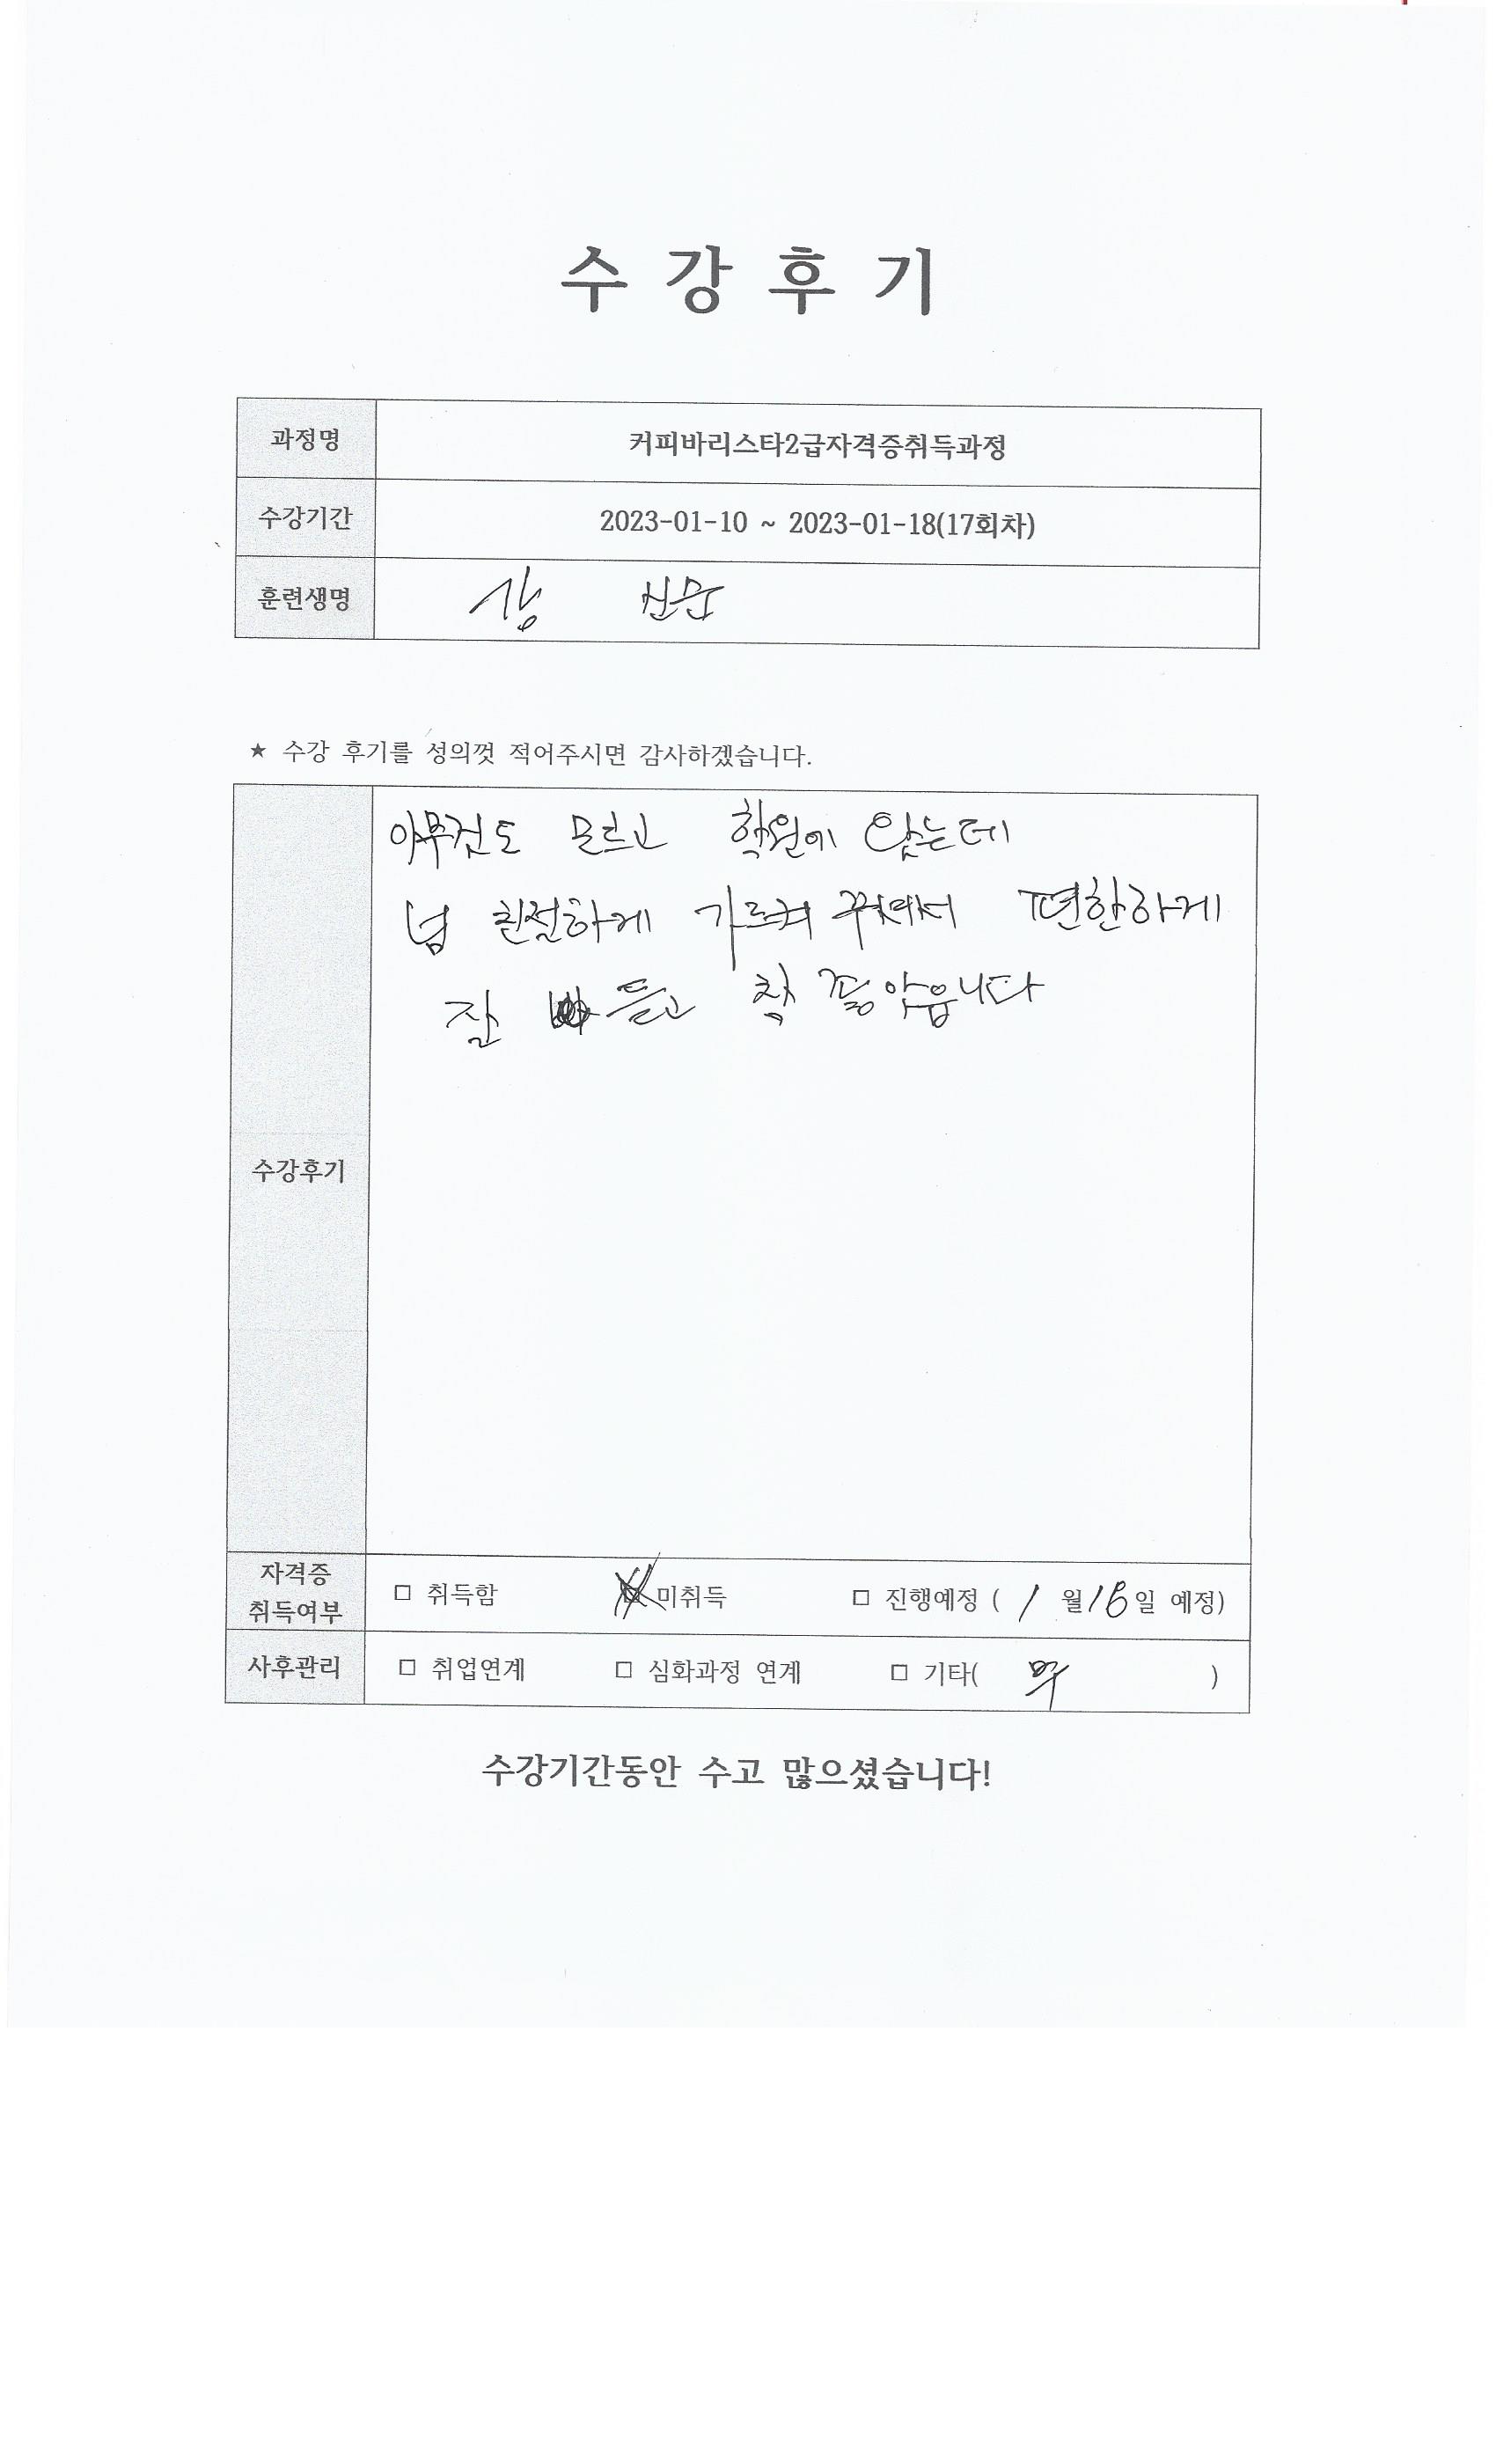 수 강 후 기
과정명 커피바리스타2급자격증취득과정
수강기간 2023-01-10 ~ 2023-01-18(17회차)
훈련생명 강
★ 수강 후기를 성의껏 적어주시면 감사하겠습니다.
수강후기
아무것도 모르고 학원에 왔는데
넘 친절하게 가르켜 편한하게
잘 듣고
자격증 취득여부 □ 취득함 미취득 □ 진행예정 ( 1 월 16일 예정)
사후관리 □ 취업연계 □ 심화과정 연계 □ 기타( )
수강기간동안 수고 많으셨습니다!